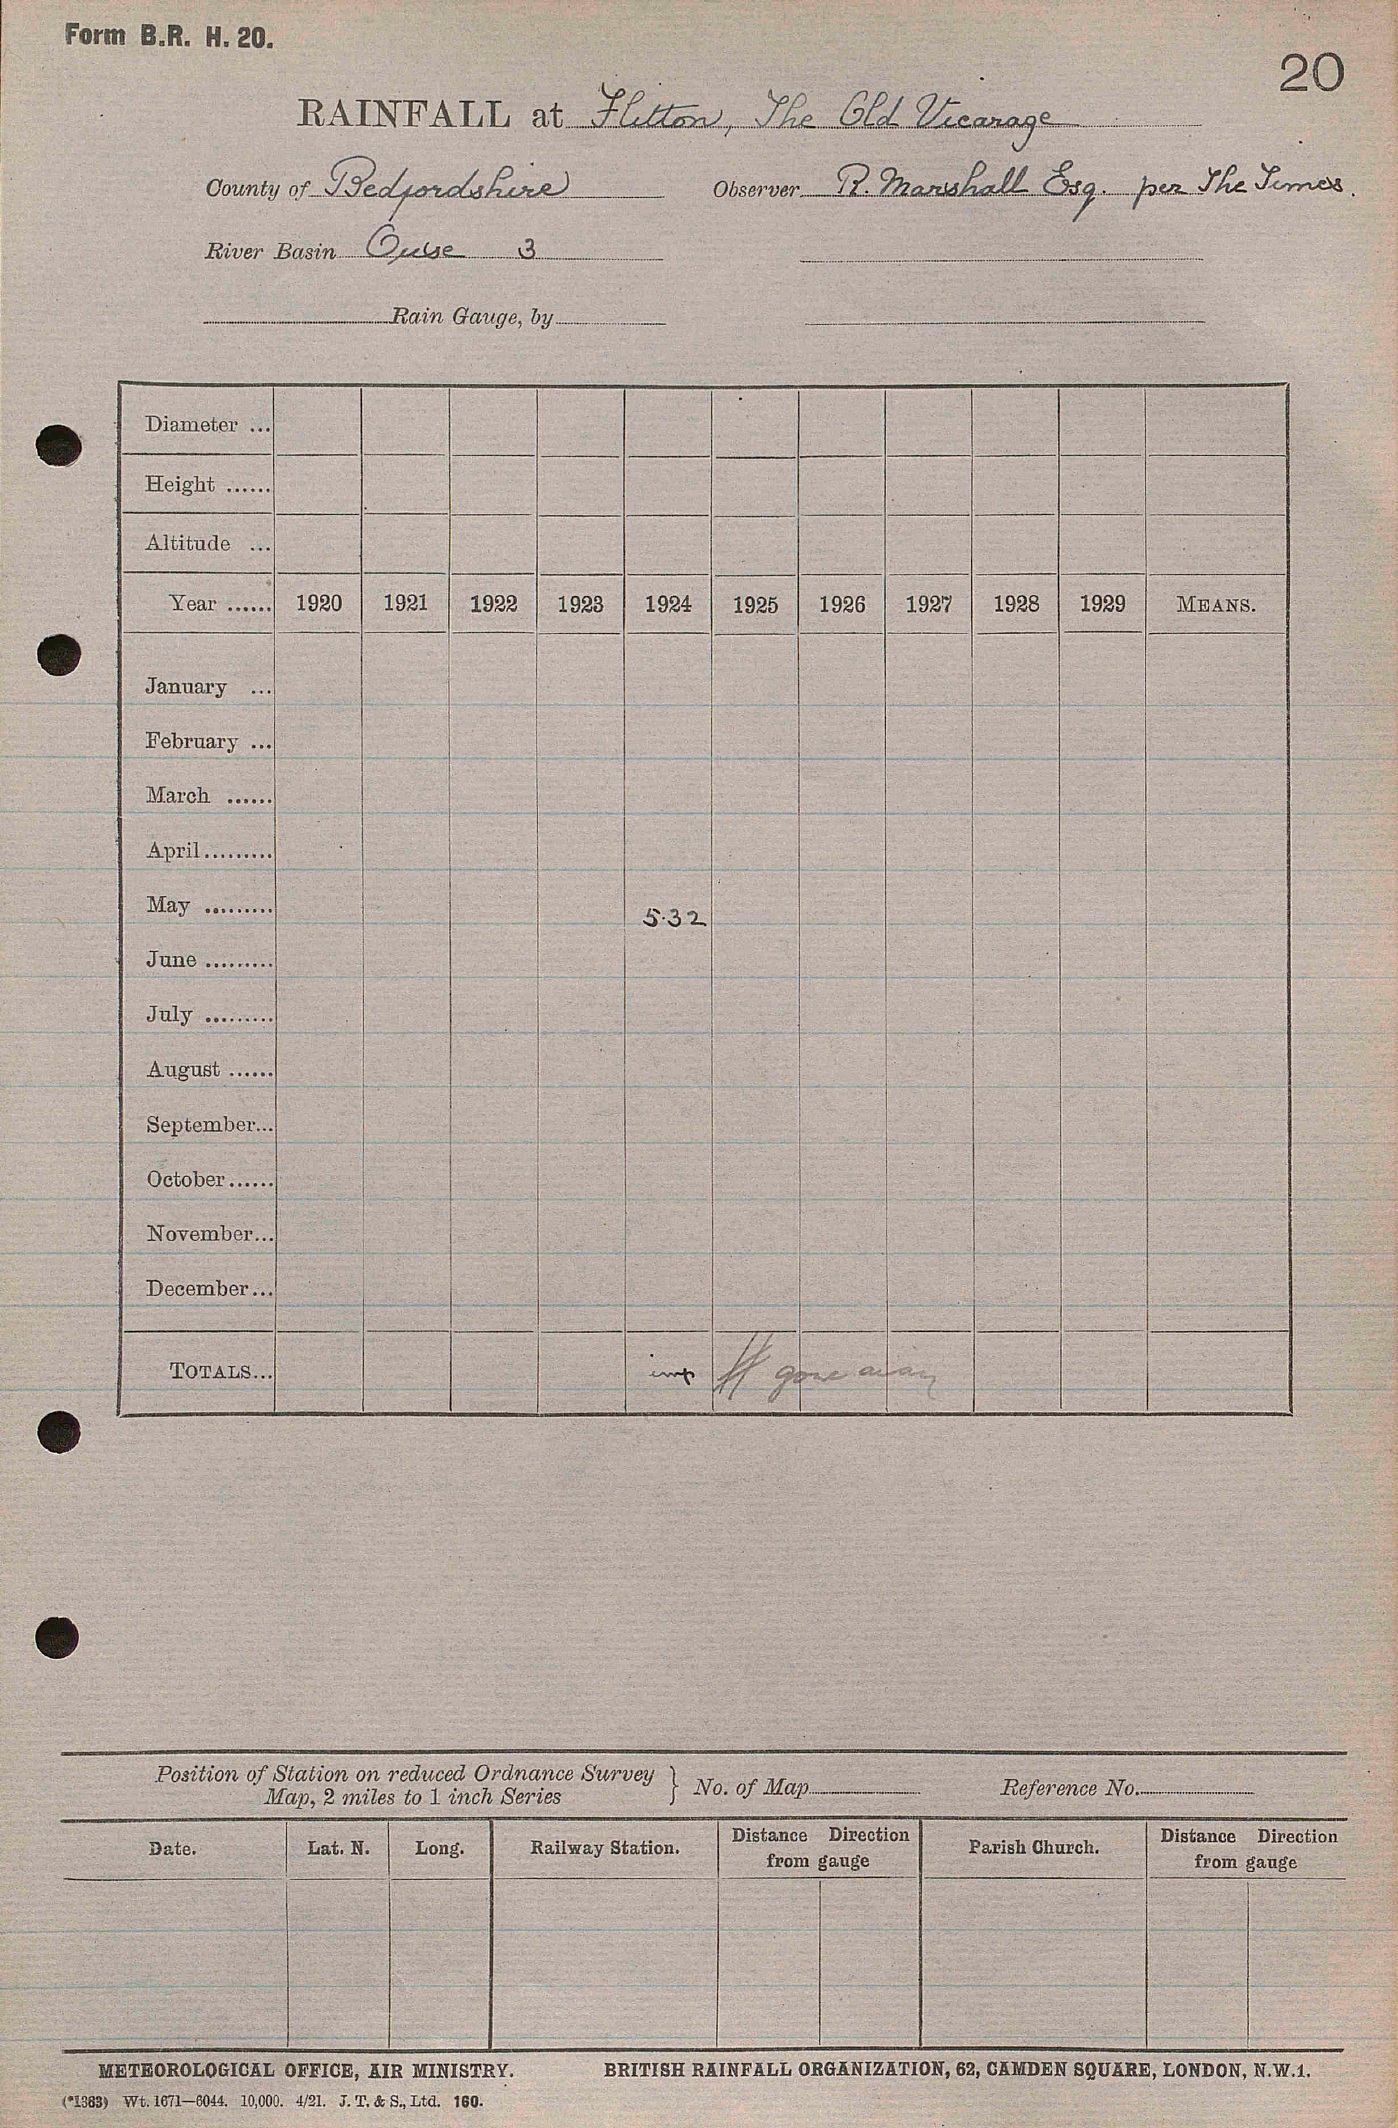 Form B.R. H. 20.
20
RAINFALL at Flitton, The Old Vicarage
County of Bedfordshire Observer R. Marshall Esq. per The Times.
River Basin Ouse 3
Rain Gauge, by
Diameter ...
Height ......
Altitude ...
Year ...... 1920 1921 1922 1923 1924 1925 1926 1927 1928 1929 MEANS.
January ...
February ...
March ......
April.........
May ......... 5.32
June .........
July .........
August ......
September...
October......
November...
December...
TOTALS... imp gone away
Position of Station on reduced Ordnance Survey
Map, 2 miles to 1 inch Series } No. of Map Reference No.
Date. Lat. N. Long. Railway Station. Distance Direction from gauge Parish Church. Distance Direction from gauge
METEOROLOGICAL OFFICE, AIR MINISTRY. BRITISH RAINFALL ORGANIZATION, 62, CAMDEN SQUARE, LONDON, N.W.1.
(*1383) Wt. 1671—6044. 10,000. 4/21. J. T. & S., Ltd. 160.